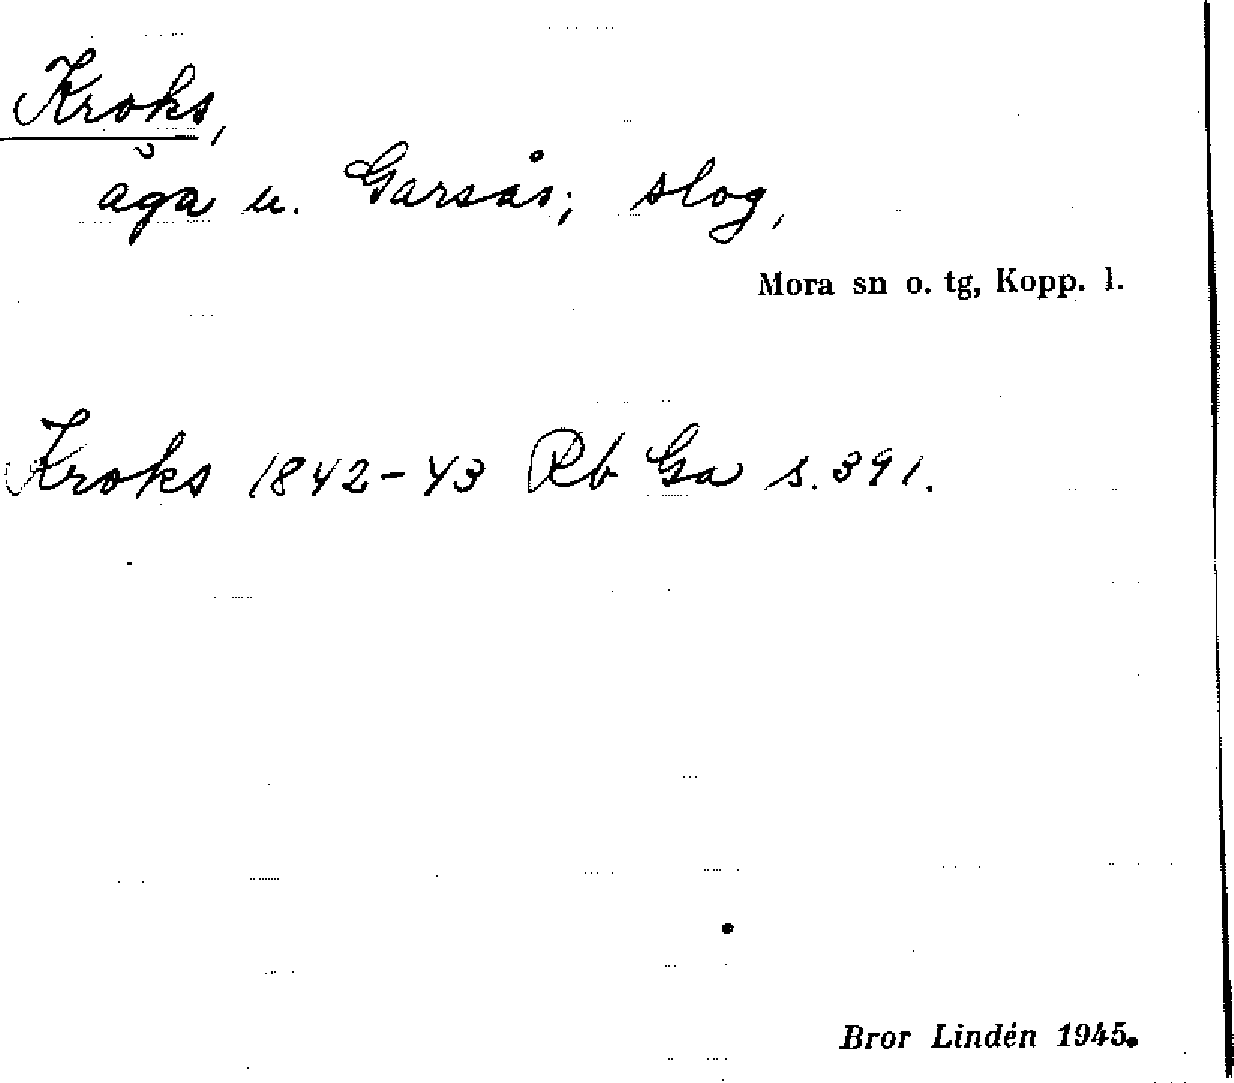 Kroks,
äga u. Garsås; slog,
Mora sn o. tg, Kopp. l.
Kroks 1842-43 Rb Ga s. 391.
Bror Lindén 1945.